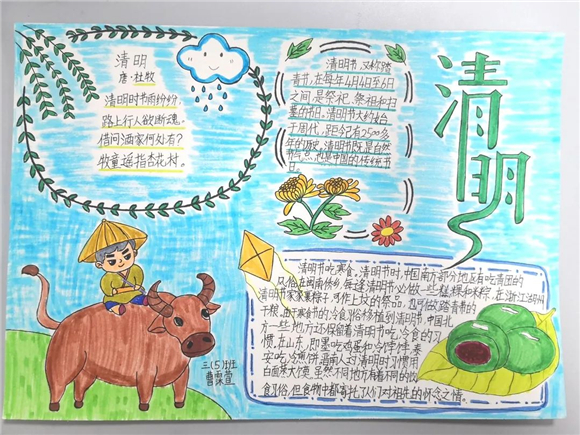 清明
唐·杜牧
清明时节雨纷纷，
路上行人欲断魂。
借问酒家何处有？
牧童遥指杏花村。
清明节，又称踏
青节，在每年4月4日至6日
之间，是祭祀、祭祖和扫
墓的节日。清明节大约始
于周代，距今已有2500多
年的历史。清明节既是自然
节气点，也是中国的传统节
日。
清明
清明节吃寒食，清明节时，中国南方部分地区有吃青团的
风俗，在闽南侨乡，每逢清明节必做一些糕粿和米粽，在浙江湖州
清明节家家裹粽子，可作上坟的祭品，也可做踏青带的
干粮，由于寒食节的冷食习俗移植到清明节，中国北
方一些地方还保留着清明节吃冷食的习
惯，在山东，即墨吃鸡蛋和冷饽饽，莱
安吃冷煎饼，晋南人过清明时，习惯用
白面蒸大馍，虽然不同地方有着不同的饮
食习俗，但食物中都寄托了人们对祖先的怀念之情。
三(5)班
曹栗萱